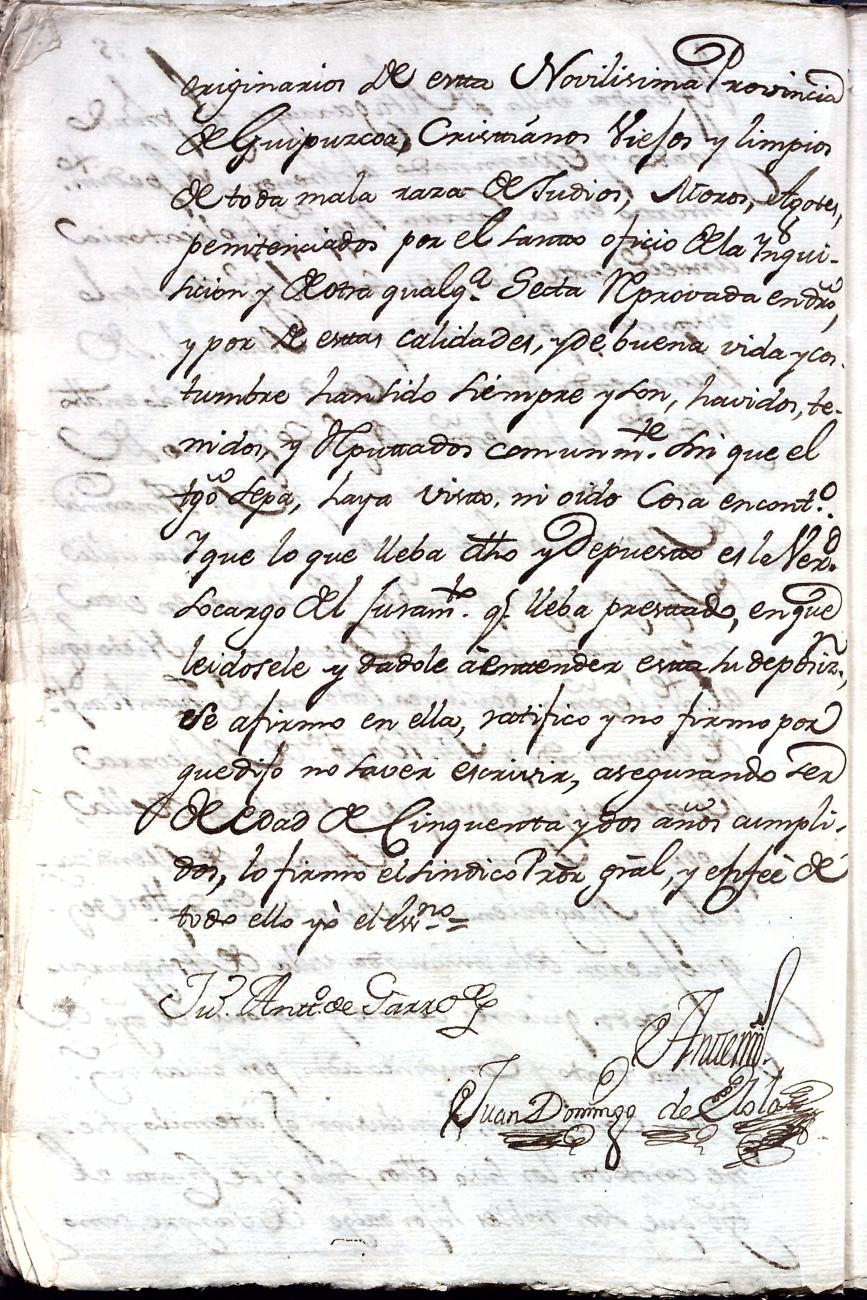 originarios de esta Novilisima Provincia
de Guipuzcoa, Cristiános Viejos y limpios
de toda mala raza de Judios, Moros, Agotes,
penitenciados por el santo oficio de la Ynqui-
sicion y de otra qualq.ª Secta Reprovada en dro,
y por de estas calidades, y de buena vida y cos-
tumbre han sido siempre y son, havidos, te-
nidos, y Reputtados comunm.te sin que el
tgo sepa, haya visto, ni oido Cosa en cont.o
Y que lo que lleba dho y Depuesto es la Ver.d
so cargo del juram.to q.e lleba presttado, en que
leidosele y dadole à enttender estta su deposiz.n,
se afirmo en ella, ratifico y no firmo por
que dijo no saver escrivir, asegurando ser
de edad de Cinquenta y dos años cumpli-
dos, lo firmo el sindico Pror gral, y en feè de
todo ello yò el Ess.no =
Ju.º Antt.º de
Antemi
Juan Domingo de